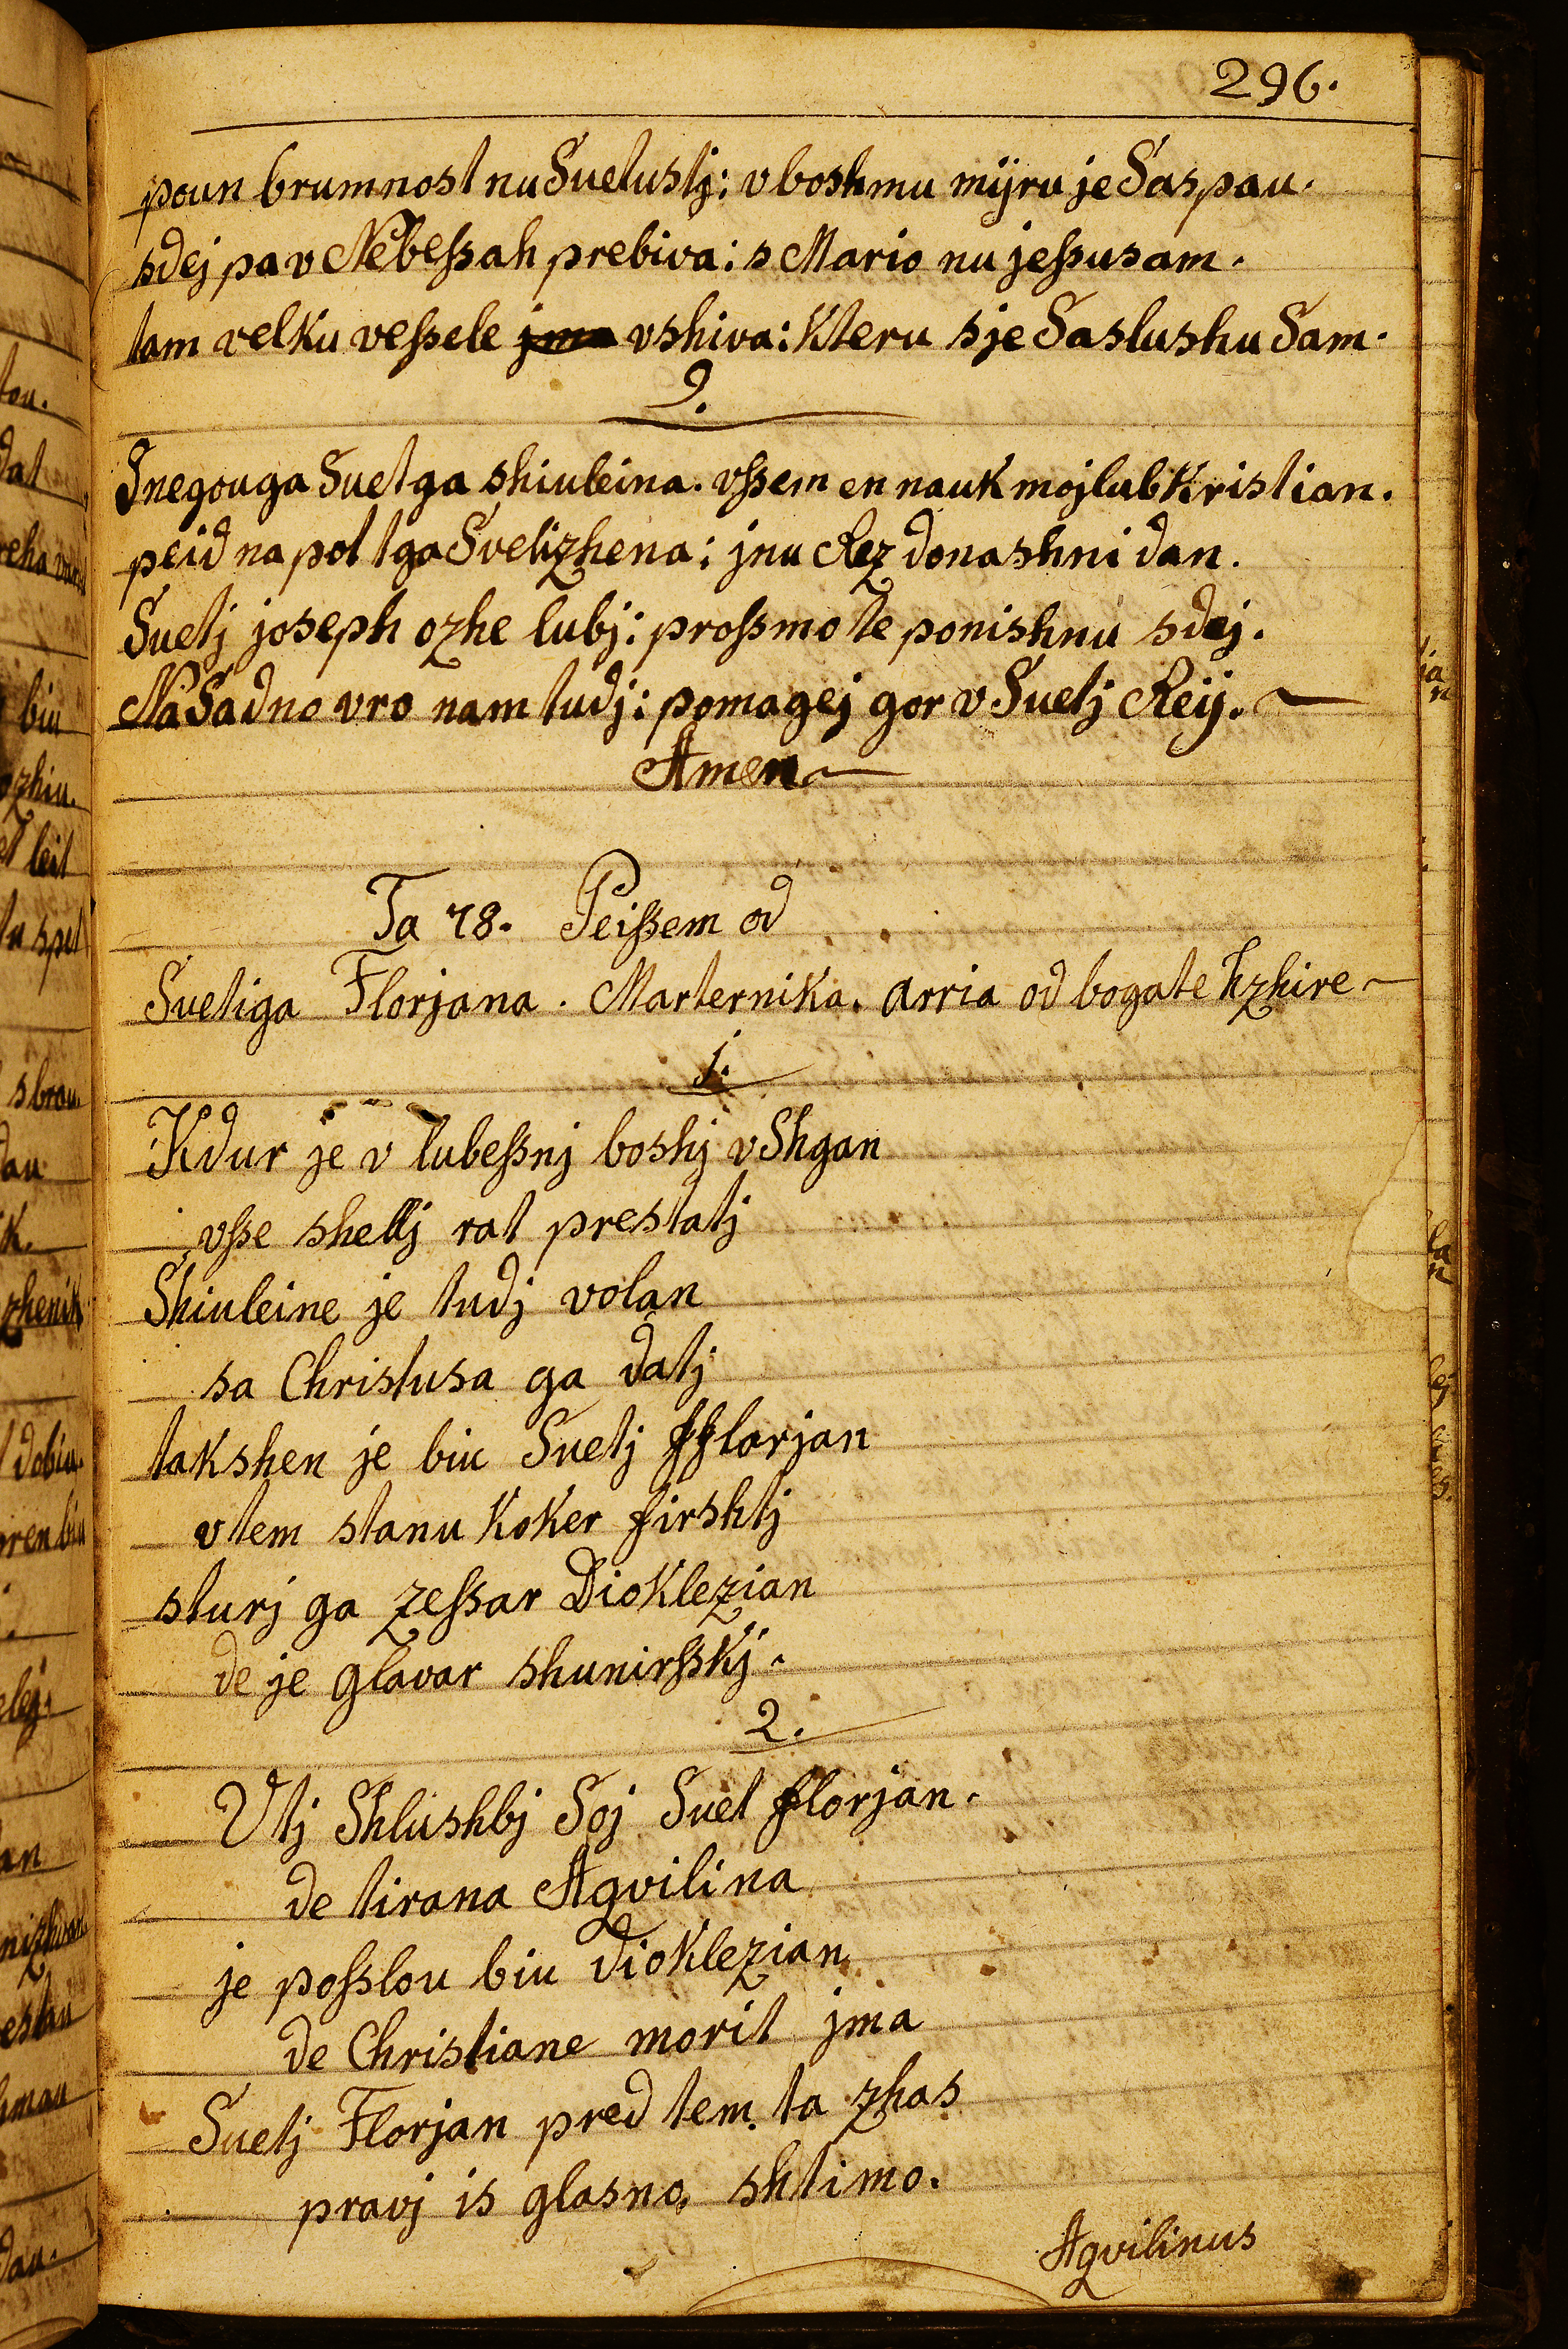 296.
poun brumnost nu Suetustj: v boshmu mijru je Saspau.
sdej pa v Nebeſsah prebiva: s Mario nu jeſsusam.
tam velku veſsele jma vshiva: Kteru sje Saslushu Sam.
9.
Snegouga Suetga shiuleina. vſsem en nauk moj lub Kristian.
peid na pot tga Svetizhena: jnu Rez donashni dan.
Suetj joseph ozhe lubj: proſsmo te ponishnu sdej.
Na Sadno vro nam tudj: pomagej gor v Suetj Reij.
Amen
Ta 78. Peiſsem od
Suetiga Florjana. Marternika. arria od bogate hzhire
1.
Kdur je v lubeſsnj boshj vShgan
vſse shellj rat prestatj
Shiuleine je tudj volan
sa Christusa ga datj
takshen je biu Suetj fflorjan
vtem stanu Koker firshtj
sturj ga zeſsar DioKlezian
de je glavar shunirſskj.
2.
Vtj Shlushbj Soj Suet florjan.
de tirana Aqvilina
je poſslou biu dioKlezian
de Christiane morit jma
Suetj Florjan pred tem ta zhas
pravj is glasno shtimo.
Aqvilinus